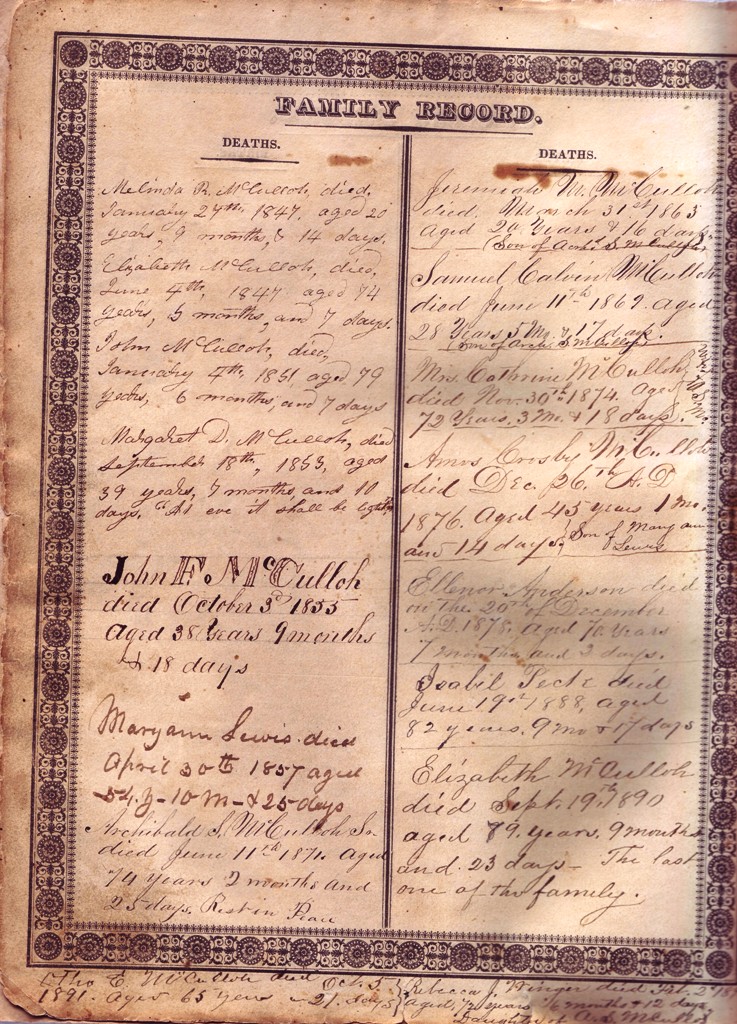 FAMILY RECORD.
DEATHS.
Melinda R. McCulloh, died,
January 27th, 1847, aged 20
years, 9 months, & 14 days.
Elizabeth McCulloh, died,
June 4th, 1847 aged 74
years, 5 months, and 7 days.
John McCulloh, died,
January 4th, 1851, aged 79
years, 6 months, and 7 days
Margaret D. McCulloh, died
September 18th, 1853, aged
39 years, 7 months, and 10
days, "At eve it shall be light"
John F McCulloh
died October 3d 1855
Aged 38 Years 9 months
& 18 days
Maryann Lewis died
April 30th 1857 aged
54 y - 10 m - & 25 days
Archibald S. McCulloh Sr
died June 11th 1871. Aged
74 years 2 months and
25 days. Rest in Peace
DEATHS.
Jeremiah M. McCulloh
died. March 31st 1863
Aged Years & 16 days.
(Son of Archd S. McCulloh)
Samuel Calvin McCulloh
died June 11th 1869. aged
28 Years 5 Mo. & 17 days.
(Son of Archd S McCulloh)
Mrs. Cathrine McCulloh,
died Nov. 30th 1874. Aged
72 Years, 3 Mo. & 18 days.
Amos Crosby McCulloh
died Dec. 26th A.D
1876. Aged 45 years 1 Mo.
and 14 days. Son of Maryann
Lewis
Ellenor Anderson died
on the 20th of December
A.D. 1878, aged 70 Years
7 months and 2 days.
Isabil Teck died
June 19th 1888, aged
82 years, 9 mo & 17 days
Elizabeth McCulloh
died Sept. 19th 1890
aged 79 years, 9 months
and 23 days - The last
one of the family.
Otho E. McCulloh died Oct. 5.
1891. Aged 65 years 21 days
Rebecca J. Winger died Feb. 2
Aged, years 6 months & 12 days
Daughter of A.S. McCulloh